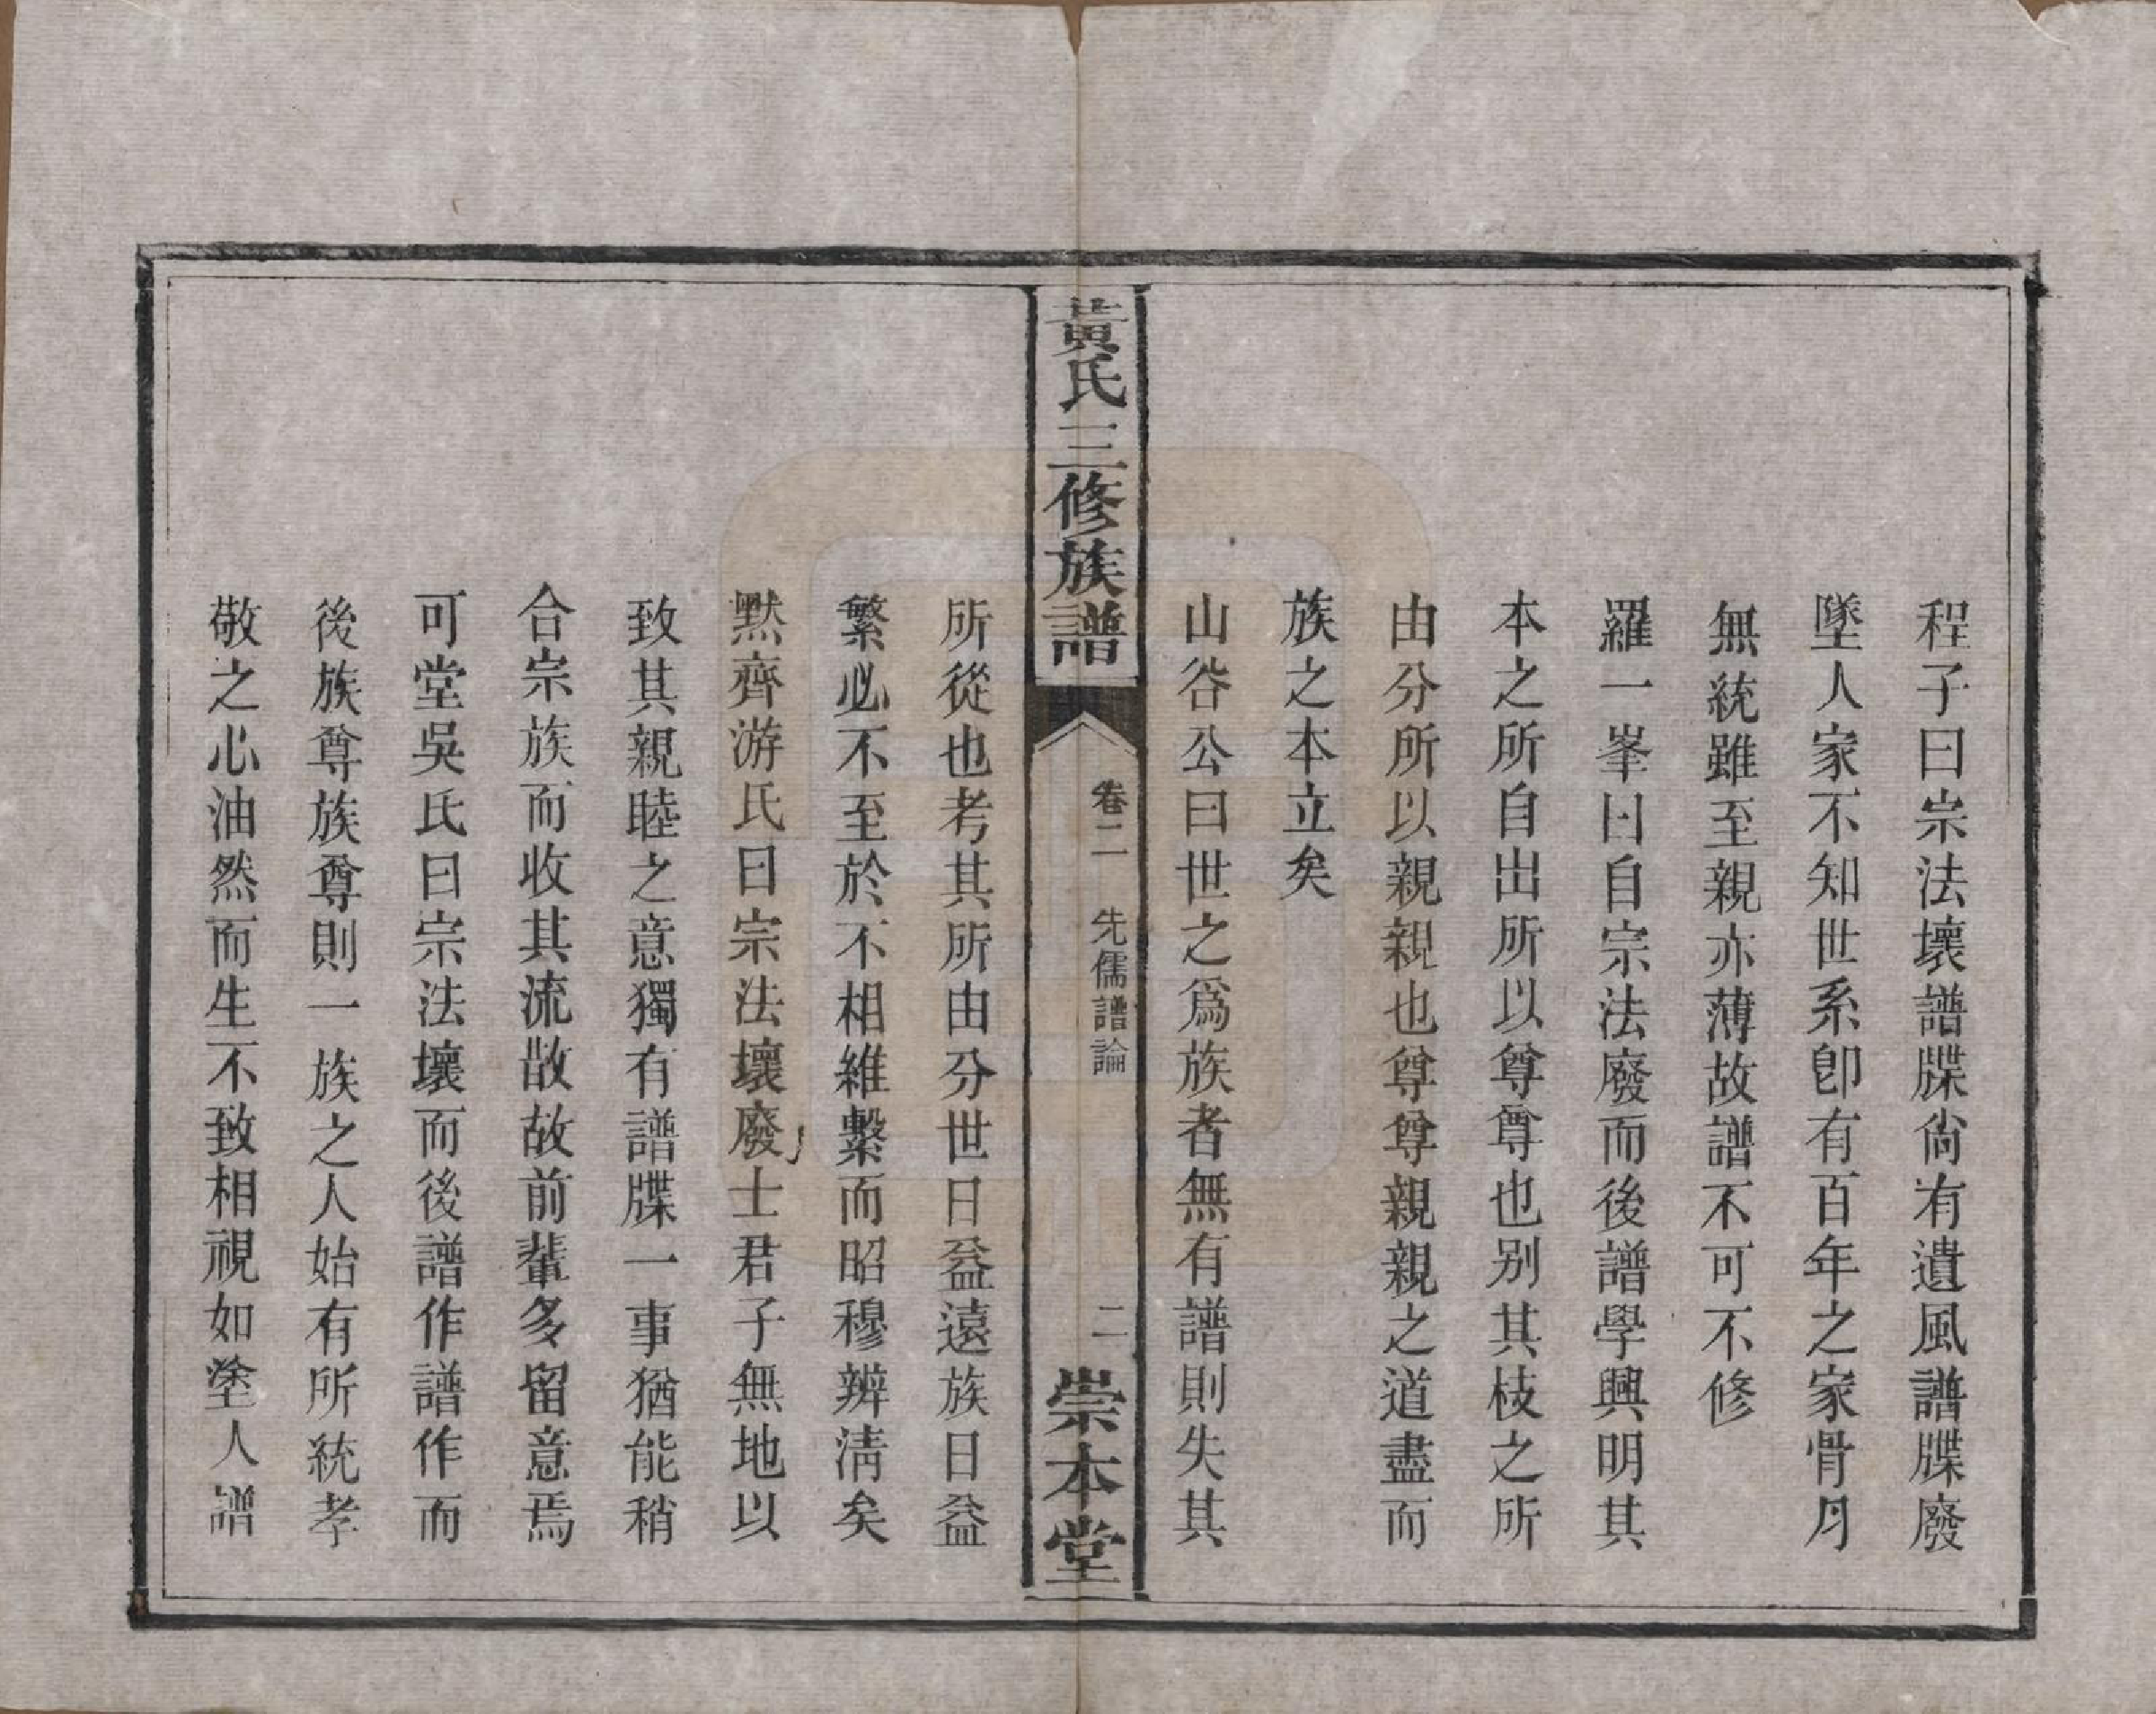 程子曰宗法壞譜牒尙有遺風譜牒廢
墜人家不知世系卽有百年之家骨月
無統雖至親亦薄故譜不可不修
羅一峯曰自宗法廢而後譜學興明其
本之所自出所以尊尊也别其枝之所
由分所以親親也尊尊親親之道盡而
族之本立矣
山谷公曰世之爲族者無有譜則失其
黃氏三修族譜
卷二 先儒譜論
二
崇本堂
所從也考其所由分世日益遠族日益
繁必不至於不相維繫而昭穆辨淸矣
黙齊游氏曰宗法壞廢士君子無地以
致其親睦之意獨有譜牒一事猶能稍
合宗族而收其流散故前輩多留意焉
可堂吳氏曰宗法壞而後譜作譜作而
後族尊族尊則一族之人始有所統孝
敬之心油然而生不致相視如塗人譜